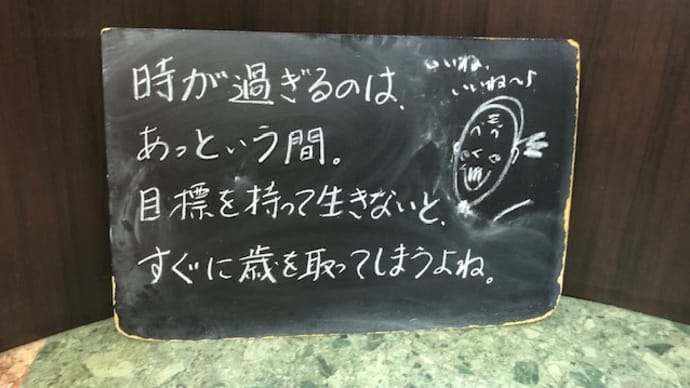 時が過ぎるのは、
あっという間。
目標を持って生きないと、
すぐに歳を取ってしまうよね。
いいね、
いいね〜♪